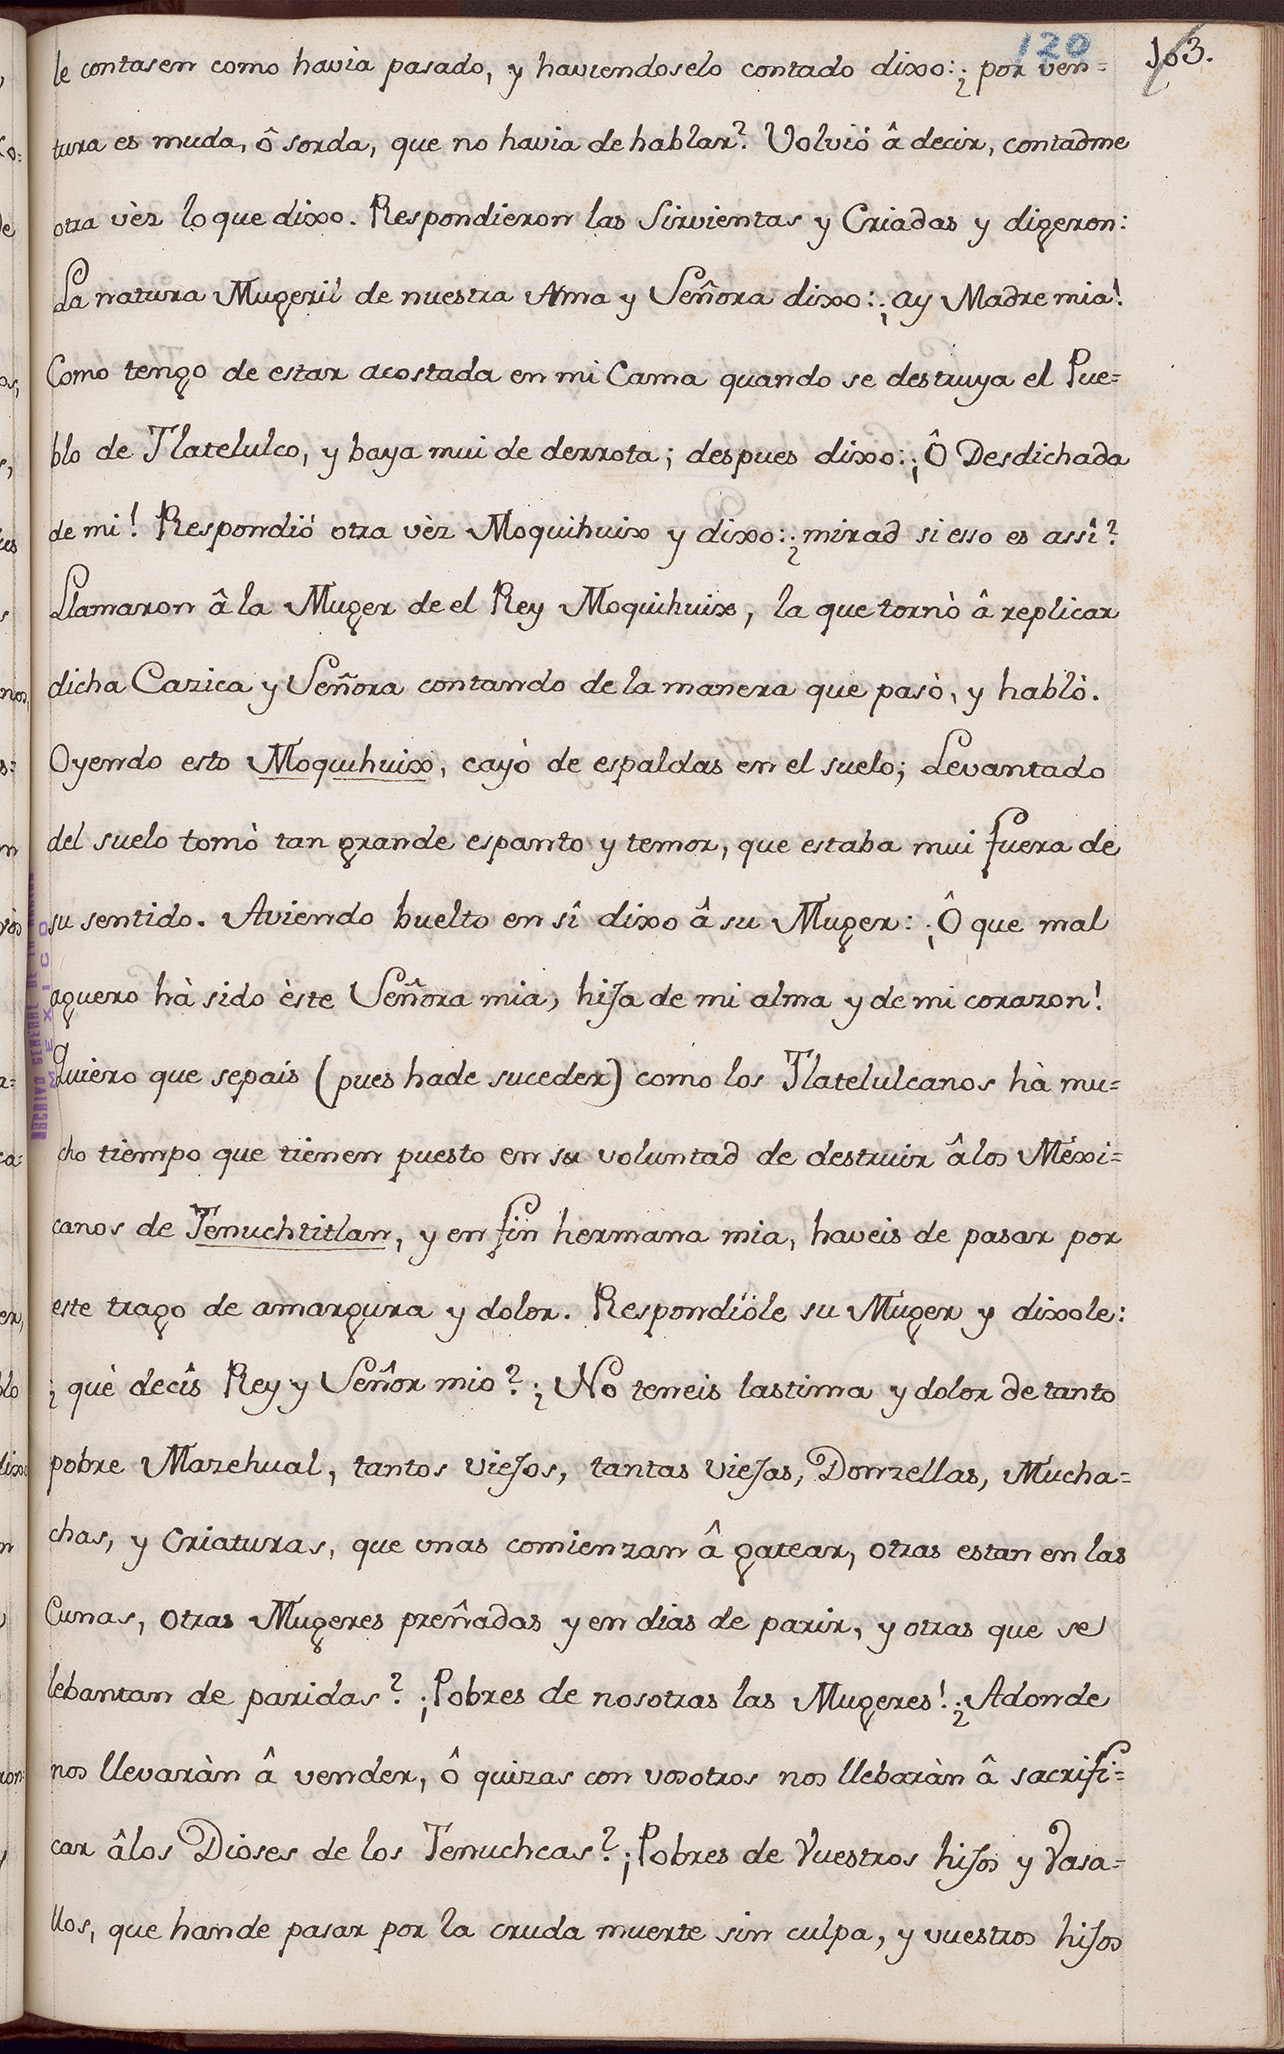 120 103.
le contasen como havia pasado, y haviendoselo contado dixo: ¿por ven=
tura es muda, ô sorda, que no havia de hablar? Volvió â decir, contadme
otra vèz lo que dixo. Respondieron las Sirvientas y Criadas y digeron:
La natura Mugeril de nuestra Ama y Señora dixo: ¡ay Madre mia!
Como tengo de estar acostada en mi Cama quando se destruya el Pue=
blo de Tlatelulco, y baya mui de derrota; despues dixo: ¡Ô Desdichada
de mi! Respondió otra vèz Moquihuix y dixo: ¿mirad si esso es assî?
Llamaron â la Muger de el Rey Moquihuix, la que tornò â replicar
dicha Cazica y Señora contando de la manera que pasò, y hablò.
Oyendo esto Moquihuix, cayò de espaldas en el suelo; Levantado
del suelo tomò tan grande espanto y temor, que estaba mui fuera de
su sentido. Aviendo buelto en sî dixo â su Muger: ¡Ô que mal
aguero hà sido èste Señora mia, hija de mi alma y de mi corazon!
Quiero que sepais (pues hade suceder) como los Tlatelulcanos hà mu=
cho tiempo que tienen puesto en su voluntad de destruir âlos Méxi=
canos de Tenuchtitlan, y en fin hermana mia, haveis de pasar por
este trago de amargura y dolor. Respondióle su Muger y dixole:
¿què decîs Rey y Señor mio? ¿No teneis lastima y dolor de tanto
pobre Mazehual, tantos viejos, tantas viejas, Donzellas, Mucha=
chas, y Criaturas, que unas comienzan â gatear, otras estan en las
Cunas, otras Mugeres preñadas y en dias de parir, y otras que se
lebantan de paridas? ¡Pobres de nosotras las Mugeres! ¿Adonde
nos llevaràn â vender, ô quizas con vosotros nos llebaràn â sacrifi=
car âlos Dioses de los Tenuchcas? ¡Pobres de Vuestros hijos y Vasa=
llos, que hande pasar por la cruda muerte sin culpa, y vuestros hijos
MEXICO